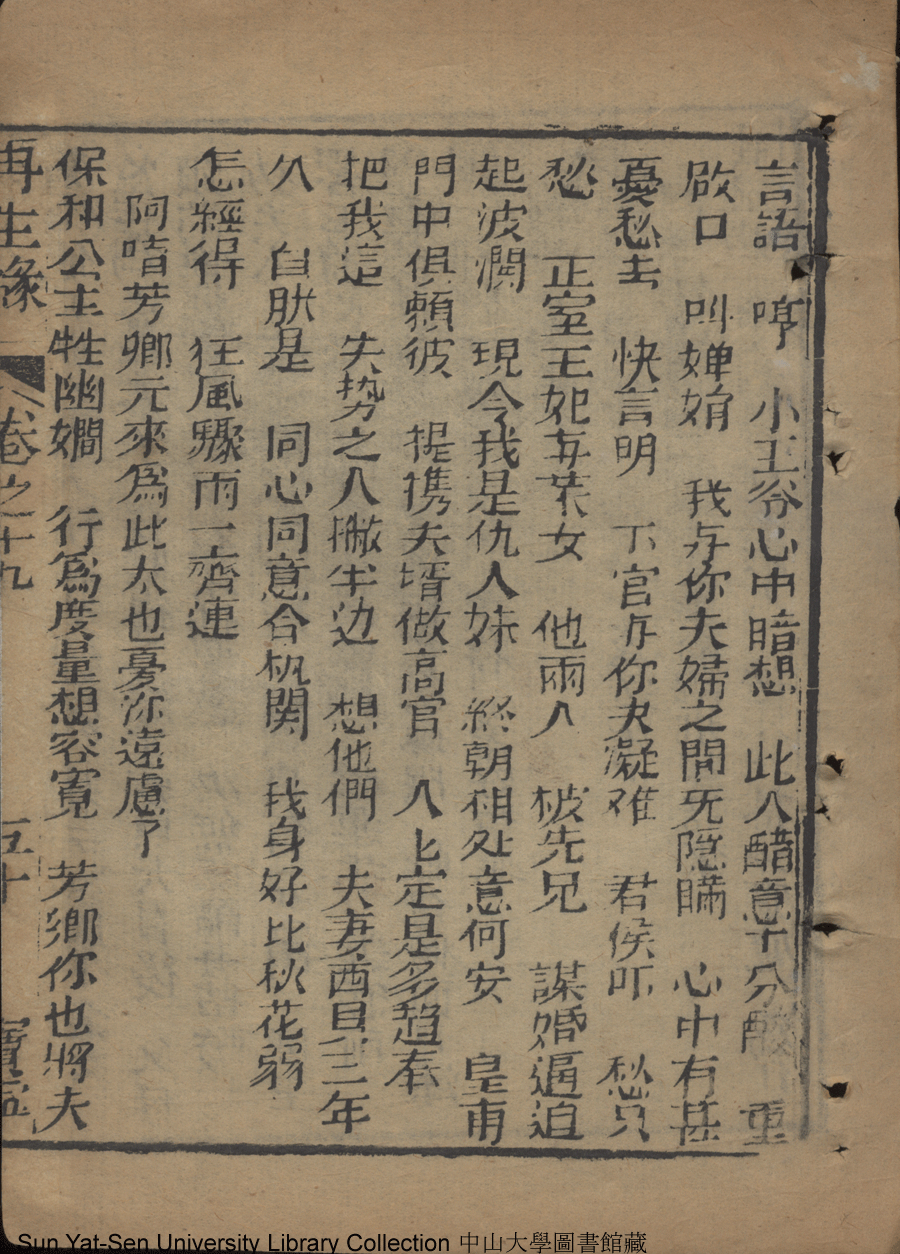 言語 哼 小王爷心中暗想 此人醋意十分酸 重
啟口 叫婵娟 我与你夫婦之間旡隐瞞 心中有甚
憂愁去 快言明 下官与你决凝难 君侯吓 愁只
愁 正室王妃孟茉女 他両人 被先兄 謀婚逼迫
起波瀾 現今我是仇人妹 終朝相处意何安 皇甫
門中俱頼彼 提携夫壻做高官 人匕定是多趋奉
把我這 失势之人撇半边 想他們 夫妻面目三年
久 自肰是 同心同意合机関 我身好比秋花弱
怎經得 狂風驟雨一齊連
阿喑芳卿元來爲此太也憂你遠慮了
保和公主性幽嫺 行爲度量想容寬 芳卿你也將夫
再生緣 卷之十九 五十 寶
Sun Yat-Sen University Library Collection 中山大學圖書館藏